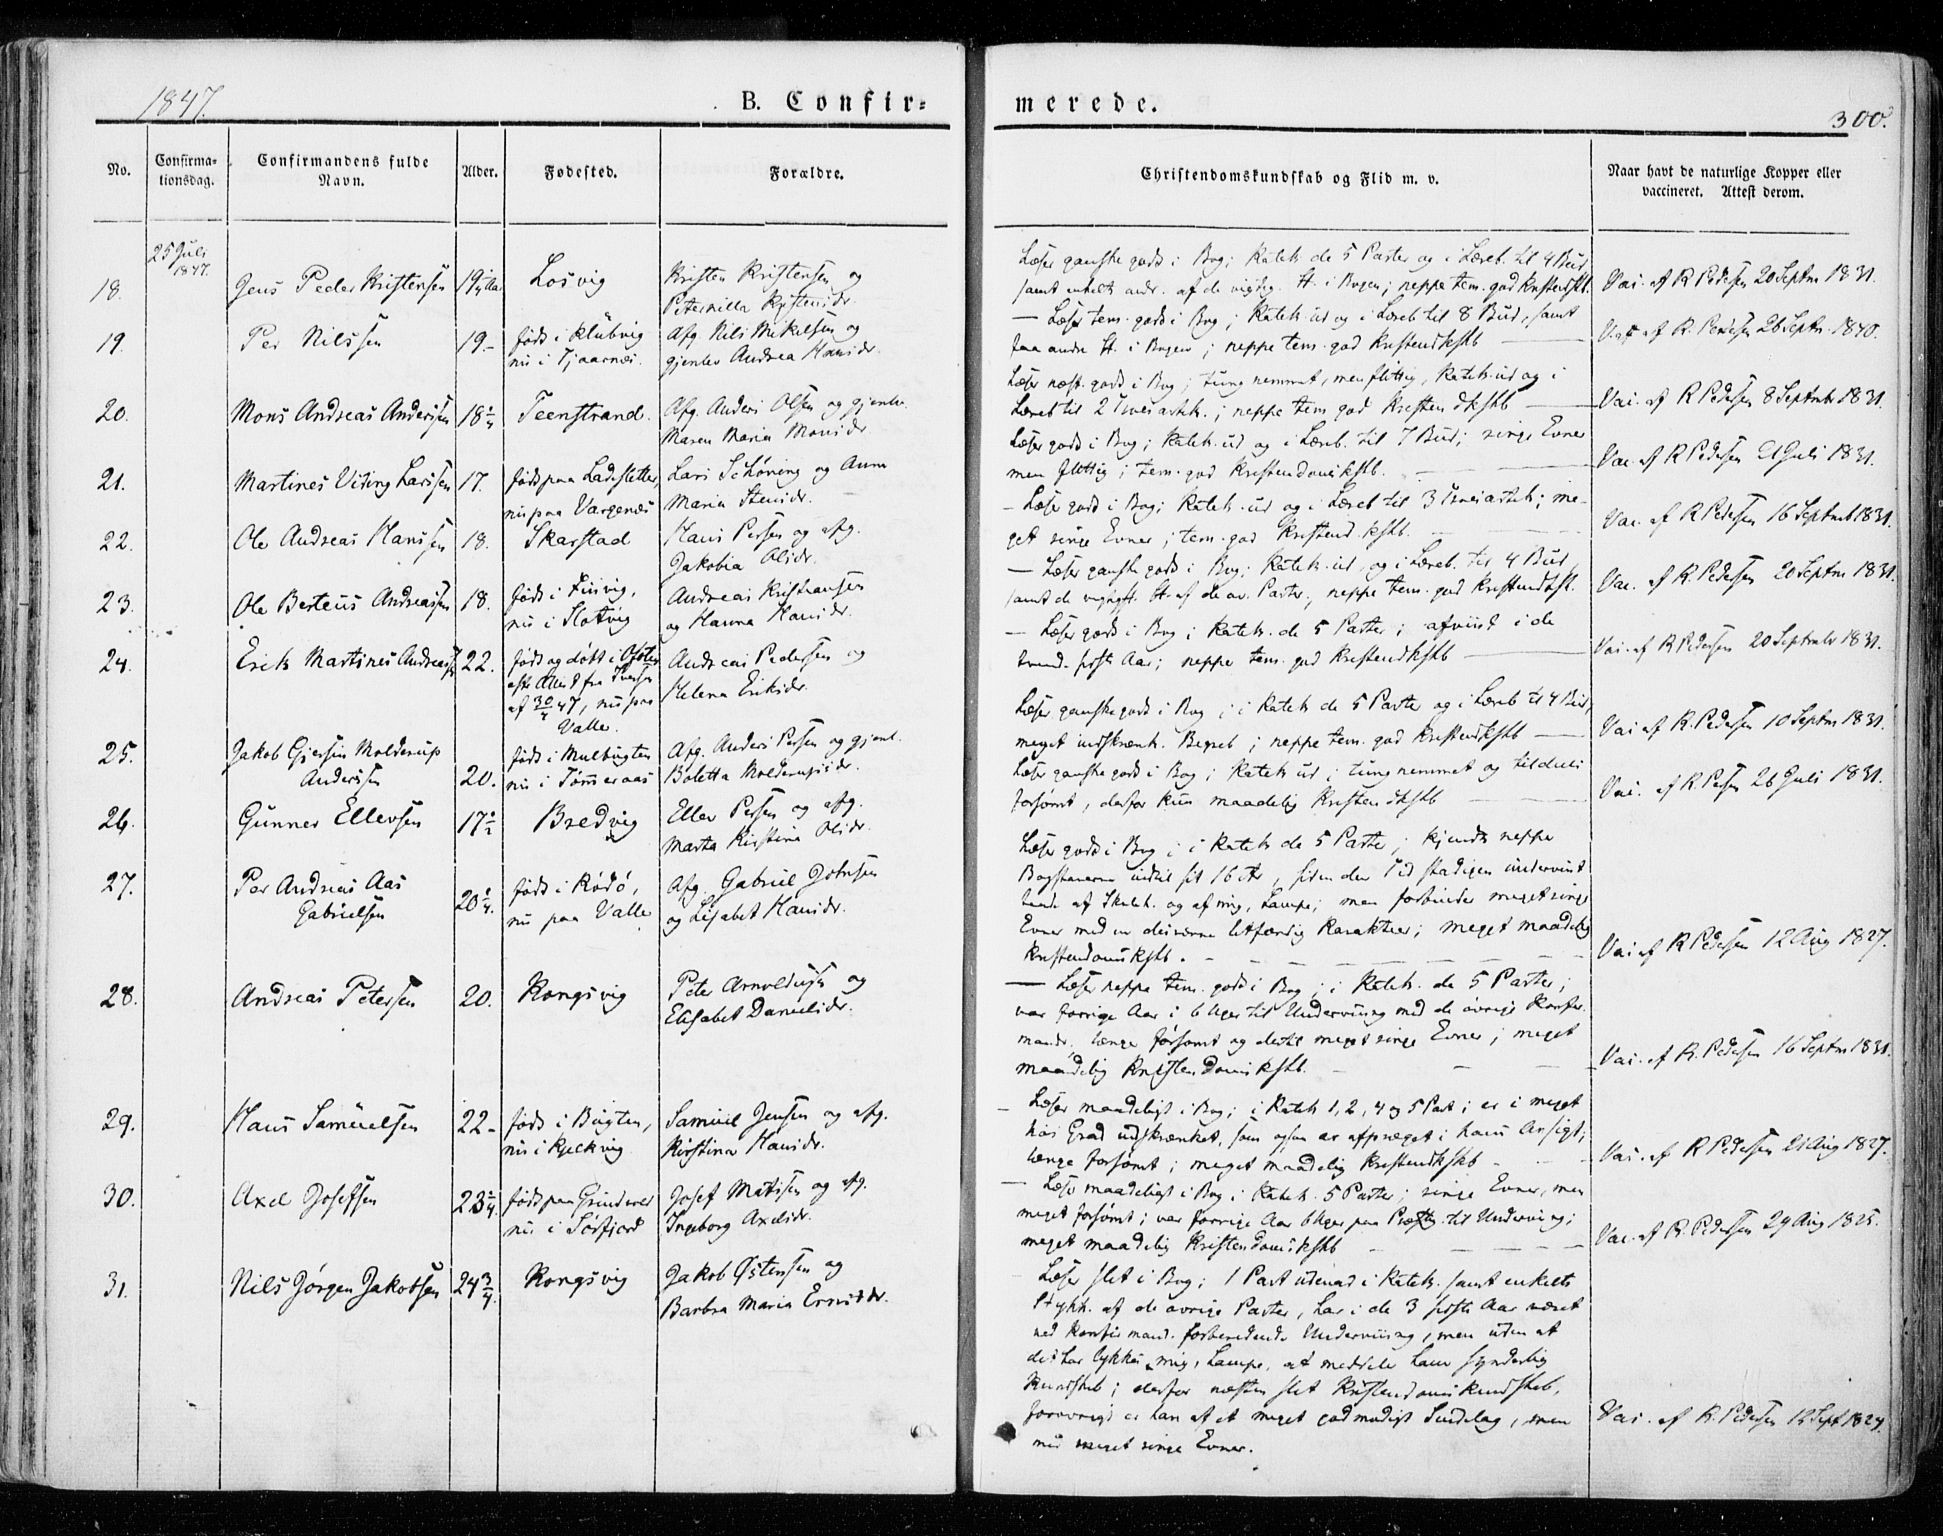 1847.
B. Confir-
merede.
300.
No.
Confirma-
tionsdag.
Confirmandens fulde
Navn.
Alder.
Fødested.
Forældre.
Christendomskundskab og Flid m. v.
Naar havt de naturlige Kopper eller
vaccineret. Attest derom.
25 Juli
1847.
18.
Jens Peder Kristensen
19
Losvig
Kristen Kristensen og
Peternilla
Læser ganske godt i Bog; Katek. de 5 Parter og i Læreb. til 4 Bud,
samt enkelt andr. af de vigtig. St. i Bogen; neppe tem. god
Vac. af R Pedersen 20 Septm 1831.
19.
Per Nilssen
19-
født i Klubvig
nu i Tjaarnæs.
Afg. Nils Mikelsen og
gjenlev Andrea Hansdr.
Læser tem. godt i Bog; Katek. ud og i Læreb til 8 Bud, samt
faa andre St. i Bogen; neppe tem. god
Vac. af R. Pedersen 26 Septm. 1840.
20.
Mons Andreas Anderssen
18
Teenstrand.
Afg. Anders Olsen og gjenlev.
Maren Maria Monsdr.
Læser næst. godt i Bog; tung nemmet, men flittig, Katek. ud og i
Læreb til 2 Troesartik.; neppe tem god
Vac. af R Pedersen 8 Septmbr 1831.
21.
Martines Viting Larssen
17.
født paa Ladsletten,
nu paa Vargenæs
Lars Schøning og Anne
Maria Stensdr.
Læser godt i Bog; Katek. ud og i Læreb. til 7 Bud; ringe Evner
men flittig; tem. god Kristendomskskb.
Vac. af R Pedersen 21 Juli 1831.
22.
Ole Andreas Hanssen
18.
Skarstad
Hans Persen og afg.
Jakobia Olsdr.
Læser godt i Bog; Katek. ud og i Læreb til 3 Troesartik; me-
get ringe Evner; tem. god Kristend.kskb.
Vac. af R Pedersen 16 Septmb 1831.
23.
Ole Berteus Andreassen
18.
født i Finvig,
nu i Slotvig
Andreas Kristiansen
og Hanna Hansdr.
Læser ganske godt i Bog; Katek. ud, og i Læreb. til 4 Bud,
samt de vigtigst. St. af de øv. Parter; neppe tem. god
Vac. af R. Pedersen 20 Septm 1831.
24.
Erik Martines Andreassen
22.
født og døbt i Ofoten
efter Attest fra
af 30/4 47, nu paa
Valle.
Andreas Pedersen og
Helena Eriksdr.
Læser godt i Bog; Katek. de 5 Parter; afviist i de
sidste Aar; neppe tem. god
Vac. af R Pedersen 20 Septmbr 1831.
25.
Jakob Gjersen Molderup
Anderssen
20.
født i Mulbugten
nu i Tømmeraas
Afg. Anders Persen og gjenl.
Boletta Molderupsdr.
Læser ganske godt i Bog; i Katek de 5 Parter og i Læreb til 4 Bud,
meget indskrænk. Begreb; neppe tem. god
Vac af R. Pedersen 10 Septm 1831.
26.
Gunner Ellevsen
17½
Bredvig
Ellev Persen og afg.
Marta Kirstina Olsdr.
Læser ganske godt i Bog; Katek ud; tung nemmet og tildels
forsømt, derfor kun maadelig
Vac. af R. Pedersen 26 Juli 1831.
27.
Per Andreas Aas
Gabrielsen
20¼.
født i Rødø,
nu paa Valle
Afg. Gabriel Johnsen
og Lisabet Hansdr.
Læser godt i Bog; i Katek de 5 Parter; kjendte neppe
Bogstaverne indtil sit 16 Aar, siden den Tid stadigen underviist
af Skoleh. og af mig, Lampe; men forbinder meget ringe
Evner med en desværre letfærdig Karakteer; meget maadelig
Kristendomskskb.
Vac af R Pedersen 12 Aug 1827.
28.
Andreas Petersen
20.
Kongsvig
Peter Arnoldusen og
Elisabet Danielsdr.
Læser neppe tem. godt i Bog; i Katek. de 5 Parter;
var forrige Aar i 6 Uger til Underviisning med de øvrige Konfir-
mandr, længe forsømt og dertil meget ringe Evner; meget
maadelig Kristendomskskb.
Vac. af R. Pedersen 16 Septm 1831.
29.
Hans Samuelsen
22-
født i Bugten,
nu i Kjeekvig
Samuel Jensen og afg.
Kirstina Hansdr.
Læser maadeligt i Bog; i Katek 1, 2, 4 og 5 Part; er i meget
høi Grad indskrænket, som ogsaa er afpræget i hans Ansigt;
længe forsømt; meget maadelig
Vac. af R Pedersen 21 Aug 1827.
30.
Axel Josefsen
23¼.
født paa Grindever
nu i Sørfjord
Josef Matisen og afg.
Ingeborg Axelsdr.
Læser maadeligt i Bog i Katek. 5 Parter; ringe Evner, men
meget forsømt; var forrige Aar 6 Uger paa til Underviisning;
meget maadelig Kristendomskskb
Vac. af R. Pedersen 29 Aug 1825.
31.
Nils Jørgen Jakobsen
24¾.
Kongsvig
Jakob Østensen og
Barbra Maria
Læser slet i Bog; 1 Part udenad i Katek. samt enkelte
Stykk. af de øvrige Parter, har i de 3 sidste Aar været
ved Konfirmand. forberedende Underviisning, men uden at
det har lykkes mig, Lampe, at meddele ham synderlig
Kundskab; derfor næsten slet Kristendomskundskab,
forøvrigt er han af et meget godmodigt Sindelag, men
meget ringe Evner.
Vac. af R. Pedersen 12 Sept 1824.